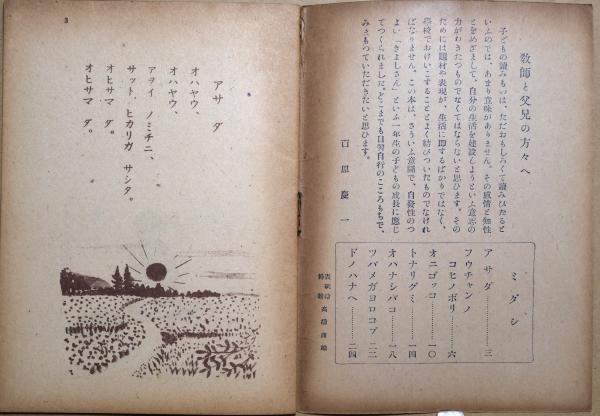 教師と父兄の方々へ
子どもの讀みものは、ただおもしろくて讀みひたると
いふのでは、あまり意味がありません。その感情と知性
とをめざまして、自分の生活を建設しようといふ意思の
力がわきたつものでなくてはならないと思ひます。その
ためには題材や表現が、生活に即するばかりではなく、
學校でおけいこすることとよく結びついたものでなけれ
ばなりません。この本は、さういふ意圖で、自發性のつ
よい「きよしさん」といふ一年生の子どもの成長に應じ
てつくられました。どこまでも自習自行のこころもちで、
みちもつていただきたいと思ひます。
百原慶一
ミダシ
アサダ…………三
フウチャンノ
コヒノボリ……六
オニゴッコ……一〇
トナリグミ……一四
オハナシバコ……一八
ツバメガヨロコブ…二二
ドノハナヘ……二四
3
アサダ
オハヤウ、
オハヤウ、
アヲイ ノミチニ、
サット ヒカリガ サシタ。
オヒサマ ダ。
オヒサマ ダ。